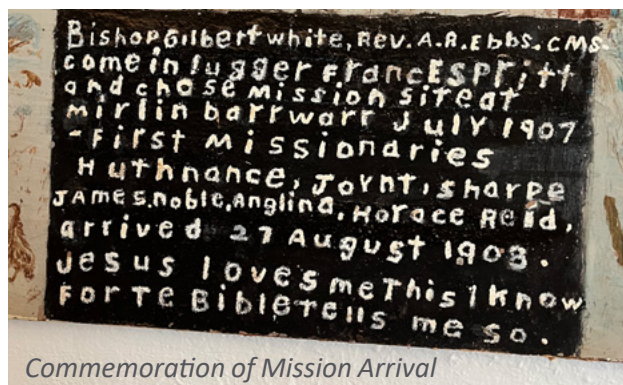 BishopGilbertwhite, Rev. A.R. Ebbs. CMS.
come in lugger FrancESPritt
and chose Mission siteat
mirlin barrwarr JULY 1907
- First Missionaries
Huthnance, Joynt, sharpe
JAmes.noble, Anglina, Horace Reid,
arrived 27 August 1908.
Jesus loves me This I Know
For Te Bibletells me so.
Commemoration of Mission Arrival